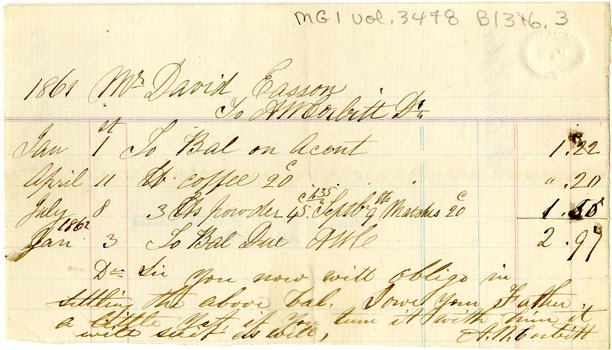 MG1 vol. 3478 B136. 3
1861 Mr David Easson
To A M Corbitt Dr
Jan 1st To Bal on acont 1.22
April 11 lb coffee 20c " .20
July 8 3 lbs powder 45c 1.35 Sept 9th Matches 20c 1.55
1862
Jan 3 To Bal Due AMC 2.97
Dear Sir You now will oblige in
settling the above bal. I owe your Father
a little yet if you turn it with him it
will suit as well, A. M. Corbitt